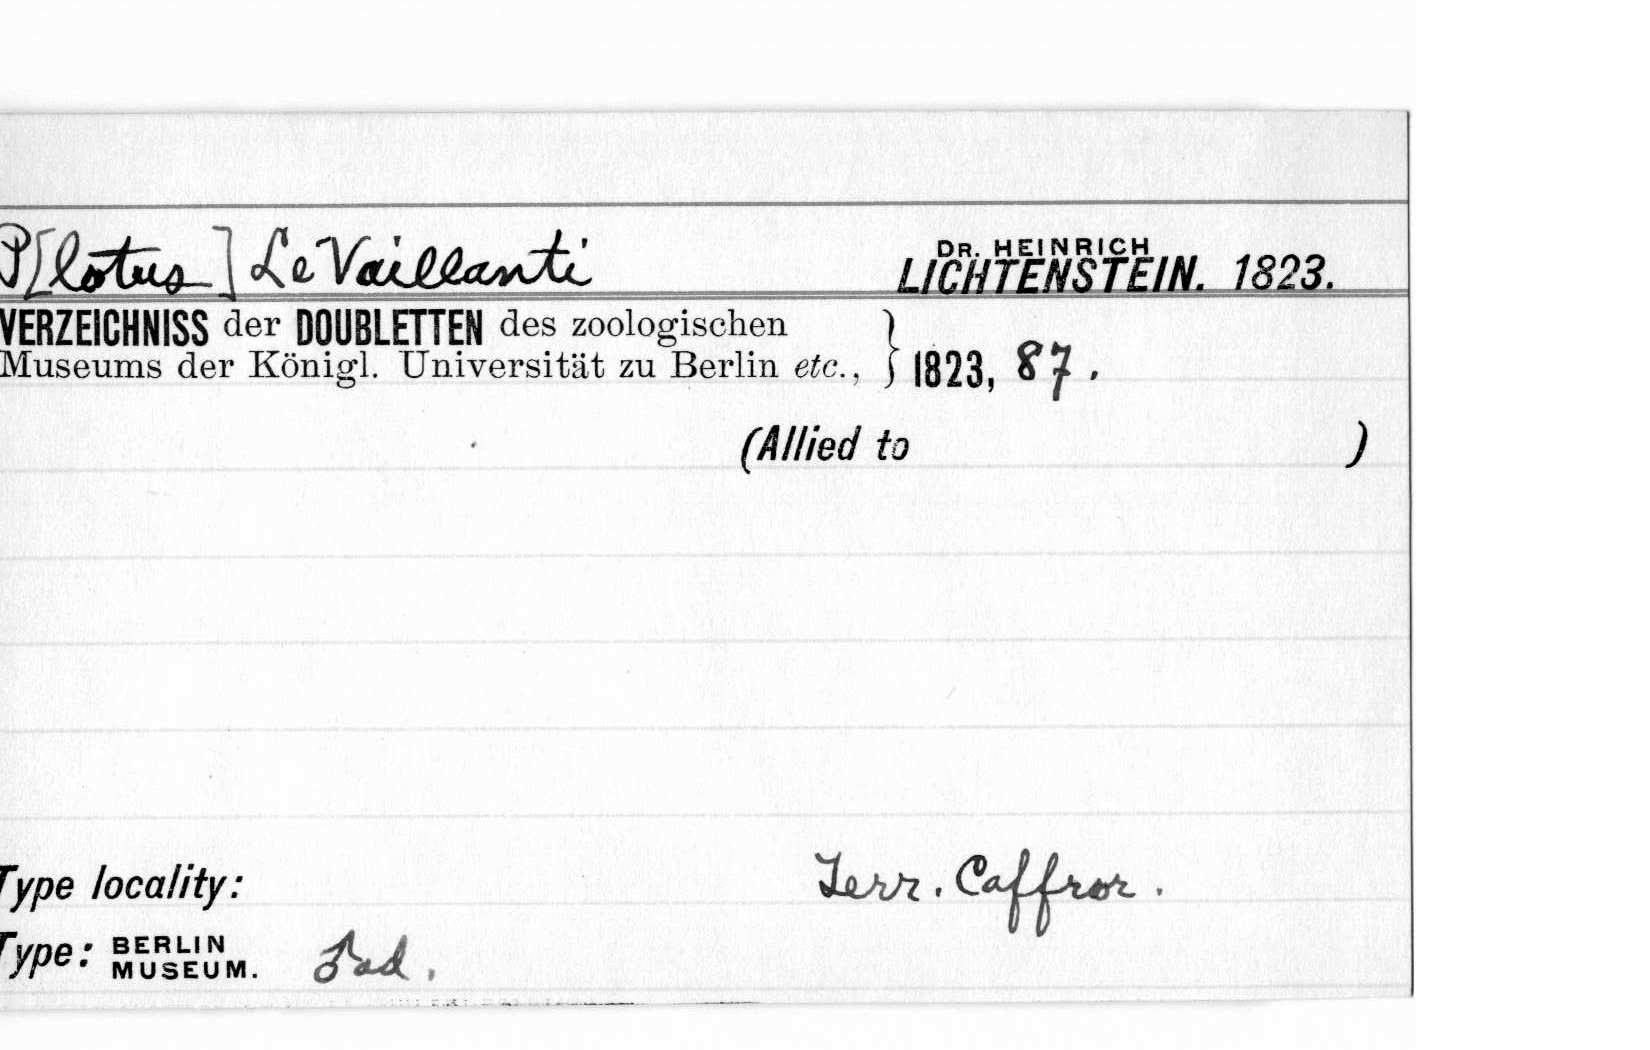 P[lotus] LeVaillanti DR. HEINRICH LICHTENSTEIN. 1823.
VERZEICHNISS der DOUBLETTEN des zoologischen
Museums der Königl. Universität zu Berlin etc., } 1823, 87.
(Allied to )
Type locality: Terr. Caffror.
Type: BERLIN MUSEUM. ♂ad.